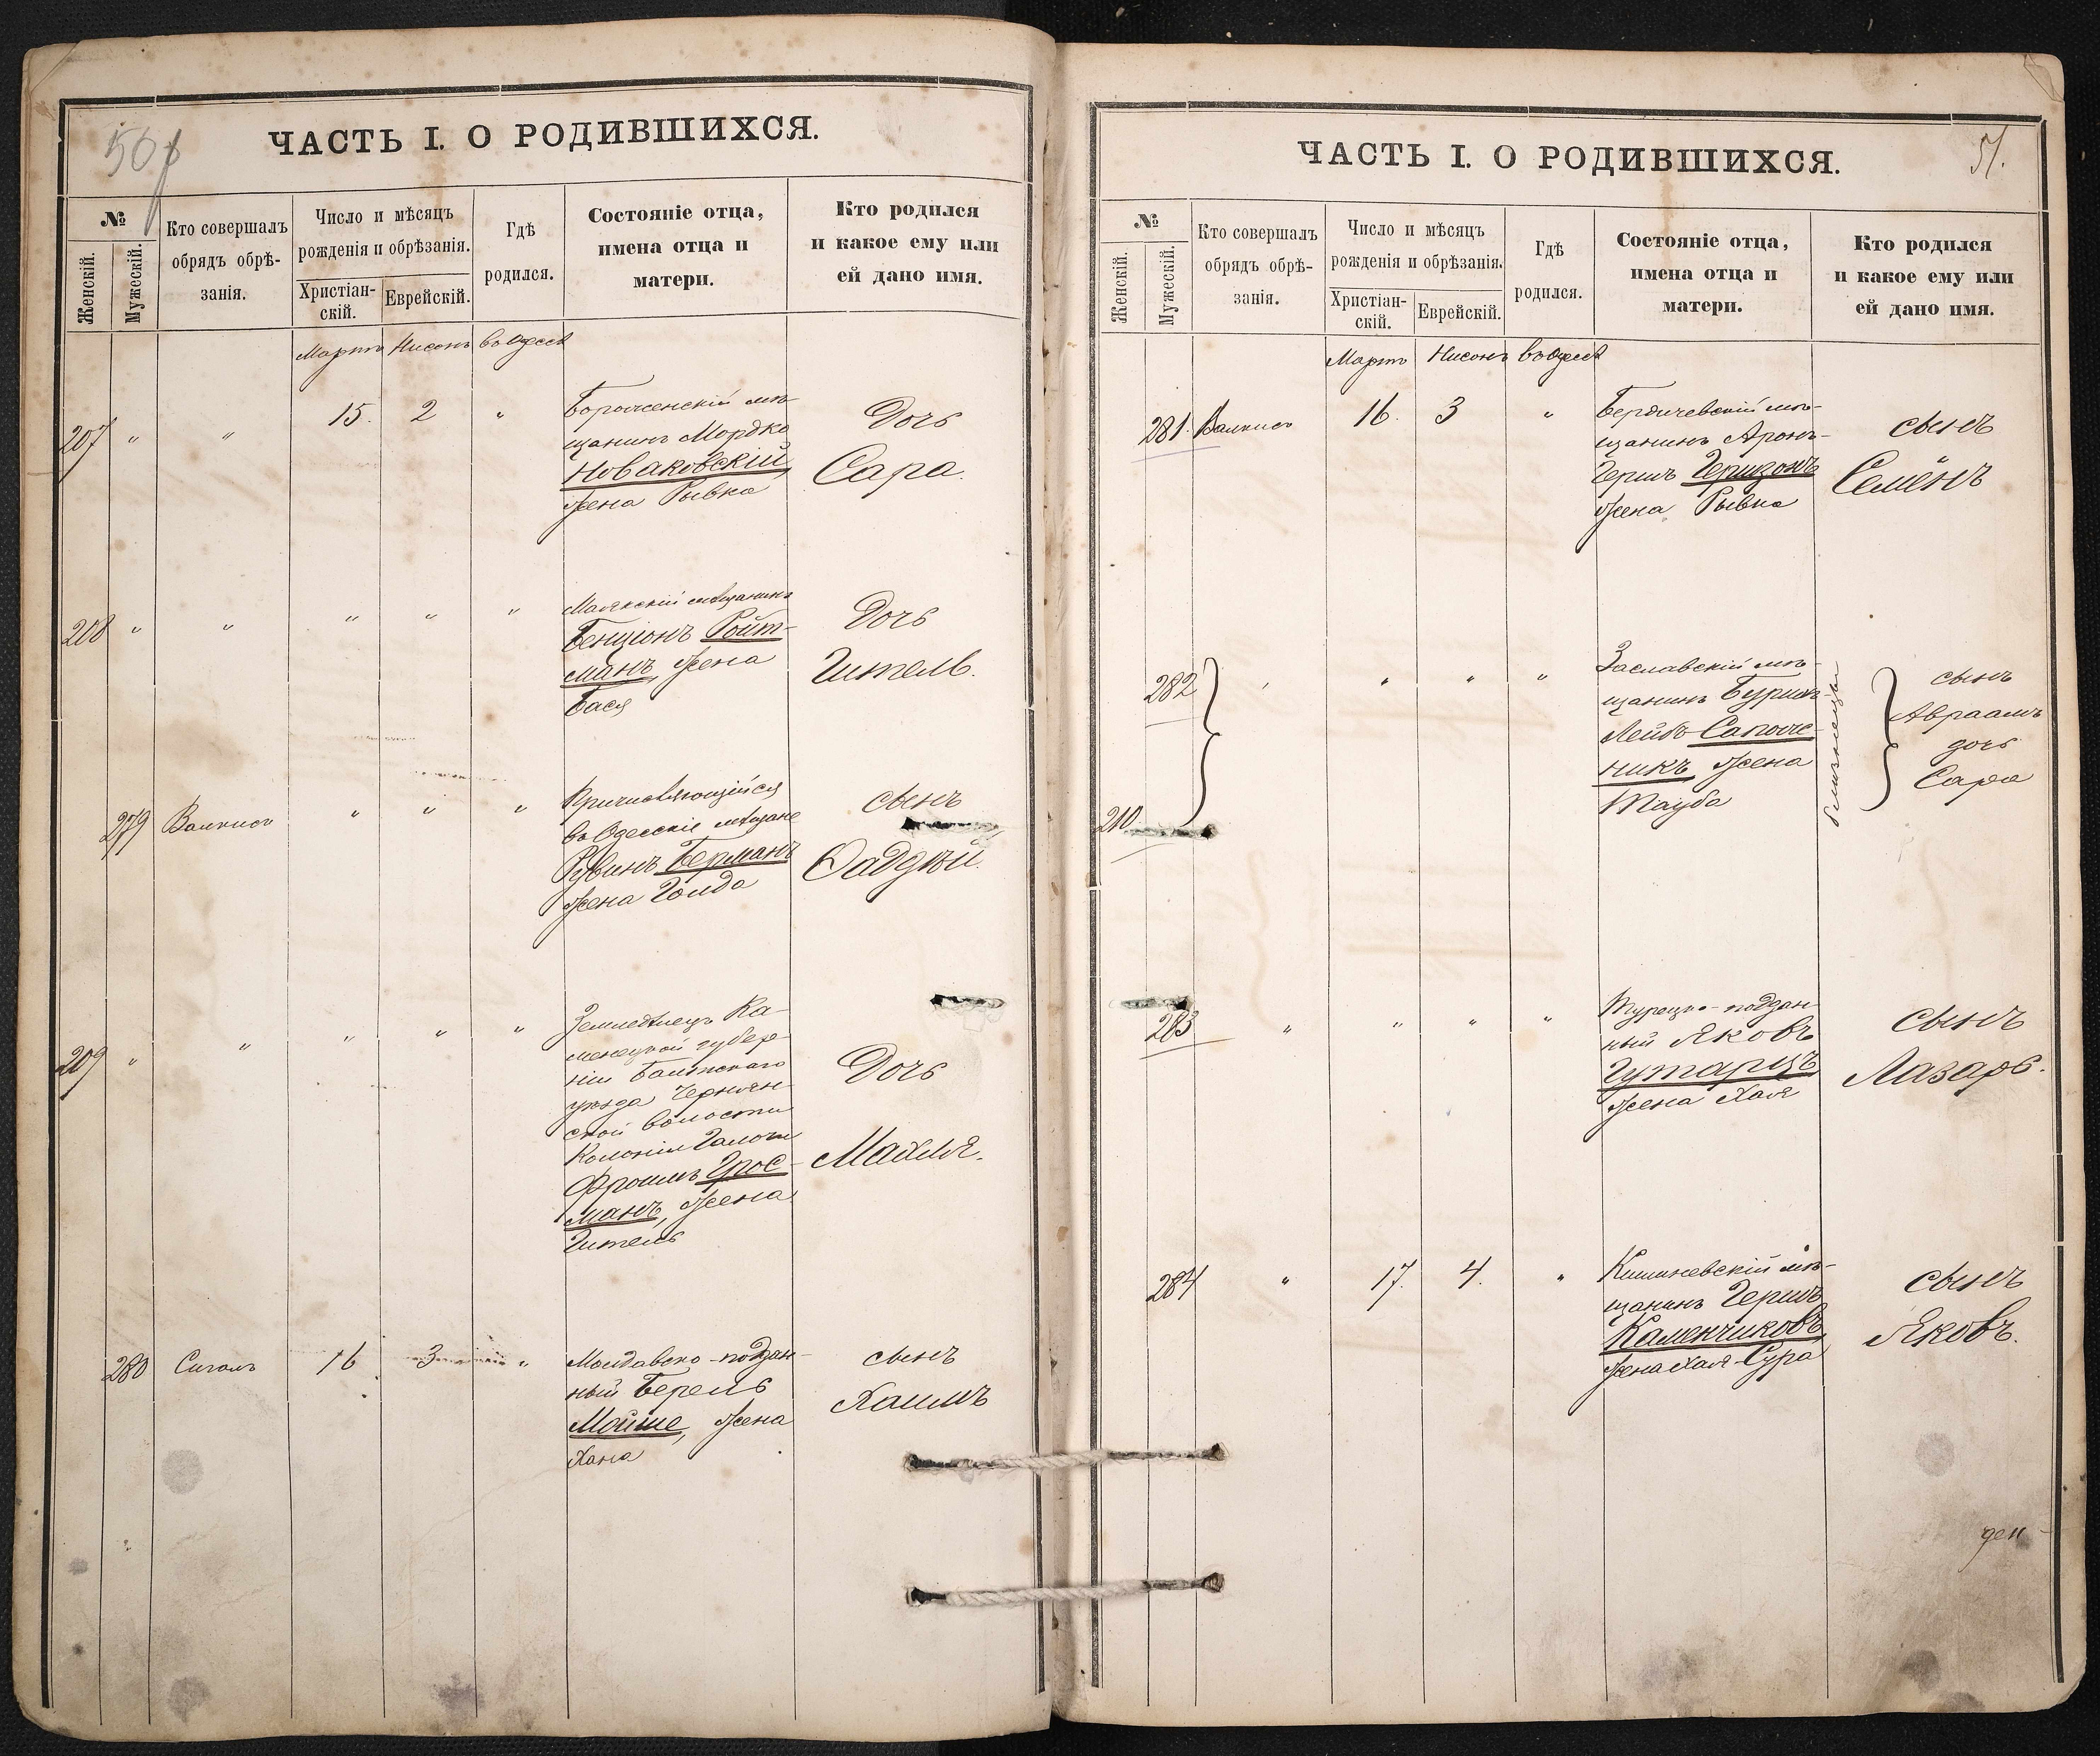 50
ЧАСТЬ I. О РОДИВШИХСЯ.
№
Женскій.
Мужескій.
Кто совершалъ
обрядъ обрѣ-
занія.
Число и мѣсяцъ
рожденія и обрѣзанія.
Христіан-
скій.
Еврейскій.
Гдѣ
родился.
Состояніе отца,
имена отца и
матери.
Кто родился
и какое ему или
ей дано имя.
Мартъ Нисонъ въ Одессѣ
207 " " 15. 2 "
мѣ-
щанинъ Мордко
Новаковскій,
жена Рывка
Дочь
Сара.
208 " " " " "
Маякскій мѣщанинъ
Бенціонъ Ройт-
манъ, жена
Бася
Дочь
Гитель.
279 Валкисъ " " "
Причисляющійся
въ Одесскіе мѣщане
Рувинъ Берманъ
жена Голда
сынъ
Фаддѣй.
209 " " " " "
Земледѣлецъ Ка-
менецкой губер-
ніи Балтскаго
уѣзда Чернян-
ской волости
Колоніи
Фроимъ Грос-
манъ, жена
Гитель
Дочь
Махля.
280 Сигалъ 16 3 "
Молдавско-поддан-
ный Берель
Мойше, жена
Хана
сынъ
Хаимъ
ЧАСТЬ I. О РОДИВШИХСЯ.
51.
№
Женскій.
Мужескій.
Кто совершалъ
обрядъ обрѣ-
занія.
Число и мѣсяцъ
рожденія и обрѣзанія.
Христіан-
скій.
Еврейскій.
Гдѣ
родился.
Состояніе отца,
имена отца и
матери.
Кто родился
и какое ему или
ей дано имя.
Мартъ Нисонъ въ Одессѣ
281. Валкисъ 16. 3 "
Бердичевскій мѣ-
щанинъ Аронъ-
Гершъ Гершзонъ
жена Рывка
сынъ
Семёнъ
282 " " " "
210
Заславскій мѣ-
щанинъ
Лейбъ Сапож-
никъ, жена
Тауба
близнецы
сынъ
Авраамъ
дочь
Сара
283 " " " "
Турецко-поддан-
ный Яковъ
Гутарцъ
жена Хая
сынъ
Лазарь.
284 " 17. 4. "
Кишиневскій мѣ-
щанинъ Гершъ
Каменчиковъ,
жена Хая-Сура
сынъ
Яковъ.